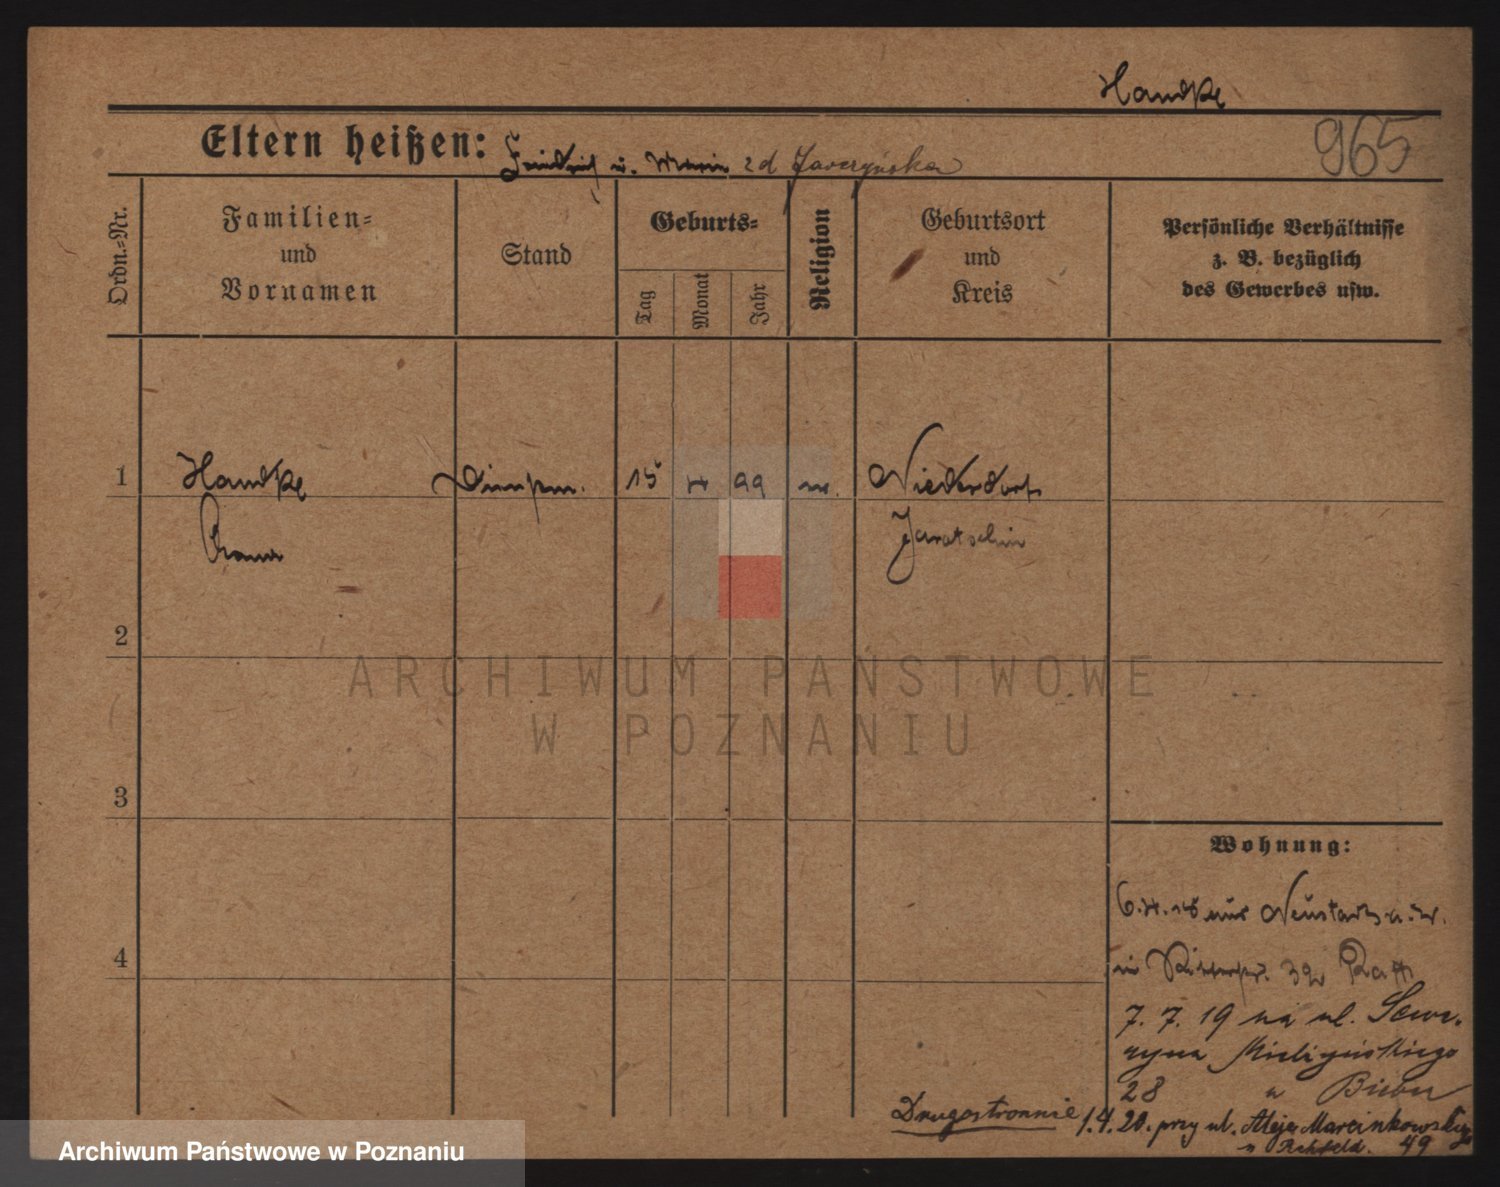 Handke
965
Eltern heißen: Friedrich u. Maria zd Jaworzyńska
Ordn.=Nr.
Familien=
und
Vornamen
Stand
Geburts=
Tag
Monat
Jahr
Religion
Geburtsort
und
Kreis
Persönliche Verhältnisse
z. B. bezüglich
des Gewerbes usw.
1
Handke
15 4 99
Niederdorf
Jarotschin
2
ARCHIWUM PAŃSTWOWE
W POZNANIU
3
Wohnung:
6.4.18 aus Neustadt a. W.
4
in Ritterstr.
7. 7. 19 na ul. Sewe-
ryna Mielżyńskiego
28 u
Drugostronnie 1.4.20. przy ul. Aleje Marcinkowskiego
u 49
Archiwum Państwowe w Poznaniu